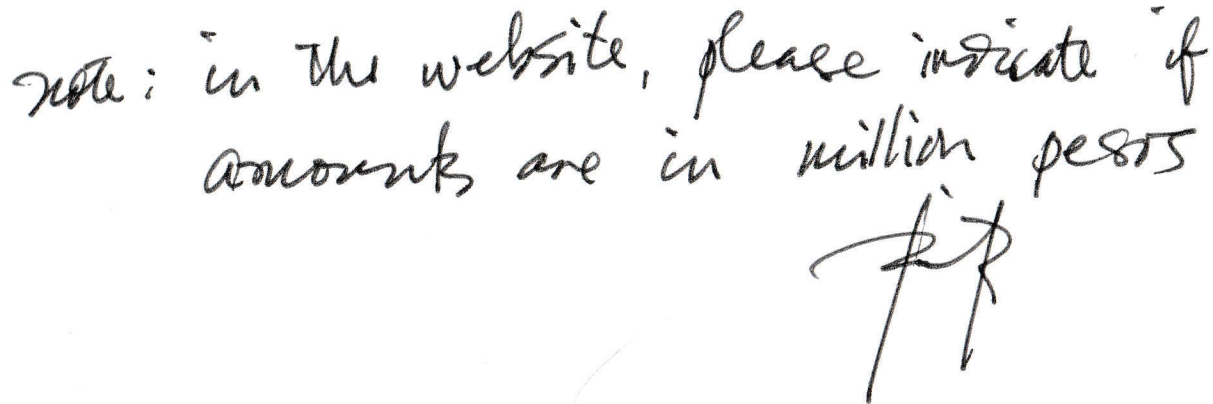 note: in the website, please indicate if
amounts are in million pesos